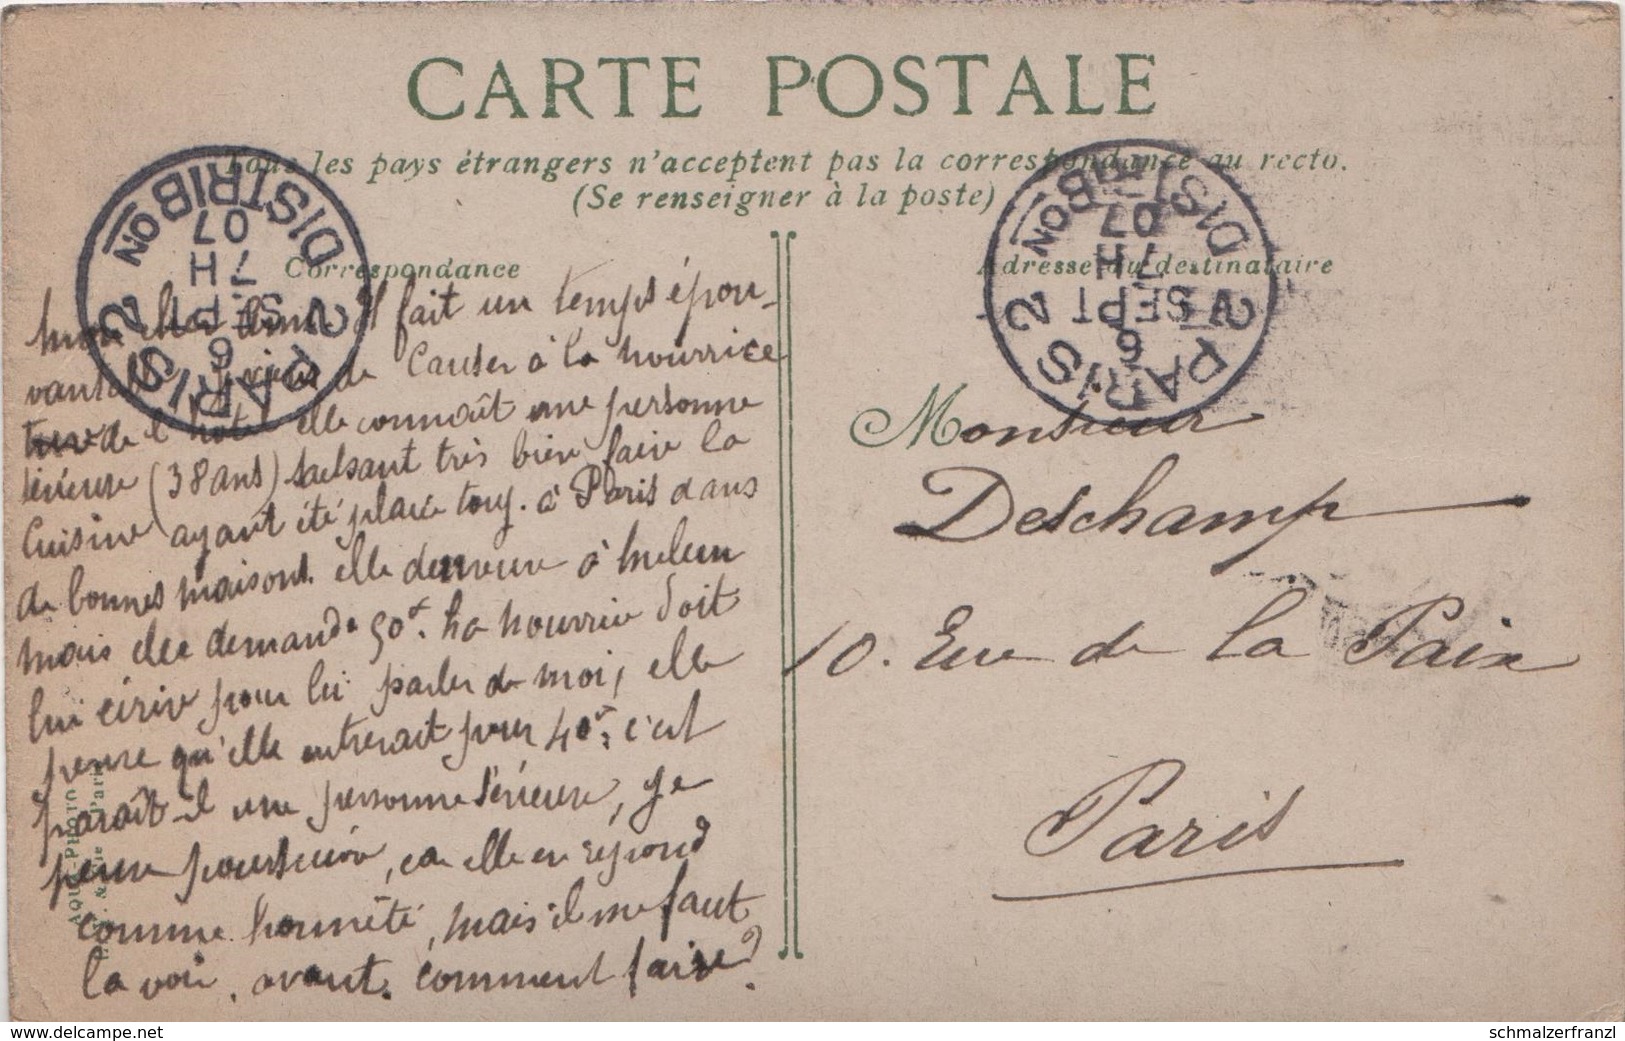 CARTE POSTALE
Tous les pays étrangers n'acceptent pas la correspondance au recto.
(Se renseigner à la poste)
Correspondance
Adresse du destinataire
PARIS 2 DISTRIBON
7H
6 SEPT
07
PARIS 2 DISTRIBON
7H
6 SEPT
07
mon cher il fait un temps épou-
vantable, je viens de Causer à la nourrice
de l'hôtel elle connaît une personne
sérieuse (38 ans) sachant très bien faire la
Cuisine ayant été placée touj. à Paris dans
de bonnes maisons. elle demeure à melun
mais elle demande 50f. La nourrice doit
lui écrire pour lui parler de moi, elle
pense qu'elle entrerait pour 40f, c'est
paraît-il une personne sérieuse, je
pense poursuivre, car elle en répond
comme honnêté, mais il me faut
la voir. avant. comment faire?
Monsieur
Deschamp
10. Rue de la Paix
Paris
AQUA-PHOTO
www.delcampe.net
schmalzerfranzl